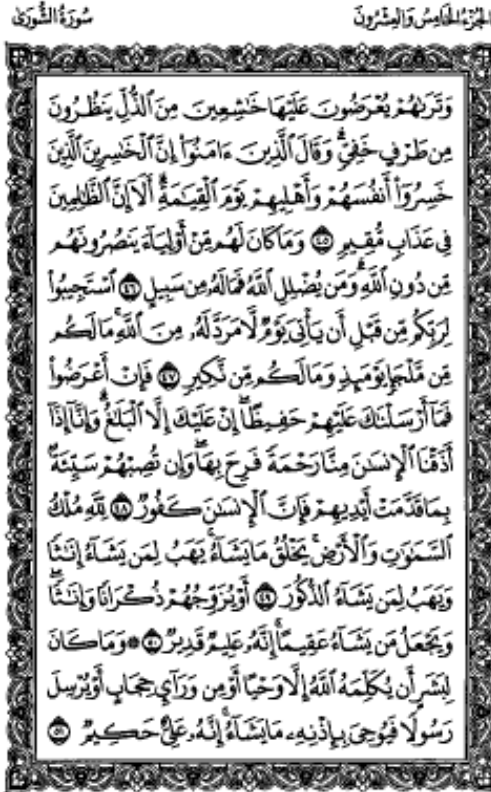 سُورَةُ الشُّورَىٰ
الجُزْءُ الخَامِسُ وَالعِشْرُونَ
وَتَرَىٰهُمْ يُعْرَضُونَ عَلَيْهَا خَٰشِعِينَ مِنَ ٱلذُّلِّ يَنظُرُونَ
مِن طَرْفٍ خَفِىٍّۗ وَقَالَ ٱلَّذِينَ ءَامَنُوٓا۟ إِنَّ ٱلْخَٰسِرِينَ ٱلَّذِينَ
خَسِرُوٓا۟ أَنفُسَهُمْ وَأَهْلِيهِمْ يَوْمَ ٱلْقِيَٰمَةِۗ أَلَآ إِنَّ ٱلظَّٰلِمِينَ
فِى عَذَابٍ مُّقِيمٍ ٤٥ وَمَا كَانَ لَهُم مِّنْ أَوْلِيَآءَ يَنصُرُونَهُم
مِّن دُونِ ٱللَّهِۗ وَمَن يُضْلِلِ ٱللَّهُ فَمَا لَهُۥ مِن سَبِيلٍ ٤٦ ٱسْتَجِيبُوا۟
لِرَبِّكُم مِّن قَبْلِ أَن يَأْتِىَ يَوْمٌ لَّا مَرَدَّ لَهُۥ مِنَ ٱللَّهِۚ مَا لَكُم
مِّن مَّلْجَإٍ يَوْمَئِذٍ وَمَا لَكُم مِّن نَّكِيرٍ ٤٧ فَإِنْ أَعْرَضُوا۟
فَمَآ أَرْسَلْنَٰكَ عَلَيْهِمْ حَفِيظًاۖ إِنْ عَلَيْكَ إِلَّا ٱلْبَلَٰغُۗ وَإِنَّآ إِذَآ
أَذَقْنَا ٱلْإِنسَٰنَ مِنَّا رَحْمَةً فَرِحَ بِهَاۖ وَإِن تُصِبْهُمْ سَيِّئَةٌۢ
بِمَا قَدَّمَتْ أَيْدِيهِمْ فَإِنَّ ٱلْإِنسَٰنَ كَفُورٌ ٤٨ لِّلَّهِ مُلْكُ
ٱلسَّمَٰوَٰتِ وَٱلْأَرْضِۚ يَخْلُقُ مَا يَشَآءُۚ يَهَبُ لِمَن يَشَآءُ إِنَٰثًا
وَيَهَبُ لِمَن يَشَآءُ ٱلذُّكُورَ ٤٩ أَوْ يُزَوِّجُهُمْ ذُكْرَانًا وَإِنَٰثًاۖ
وَيَجْعَلُ مَن يَشَآءُ عَقِيمًاۚ إِنَّهُۥ عَلِيمٌ قَدِيرٌ ٥٠ ۞ وَمَا كَانَ
لِبَشَرٍ أَن يُكَلِّمَهُ ٱللَّهُ إِلَّا وَحْيًا أَوْ مِن وَرَآئِ حِجَابٍ أَوْ يُرْسِلَ
رَسُولًا فَيُوحِىَ بِإِذْنِهِۦ مَا يَشَآءُۚ إِنَّهُۥ عَلِىٌّ حَكِيمٌ ٥١